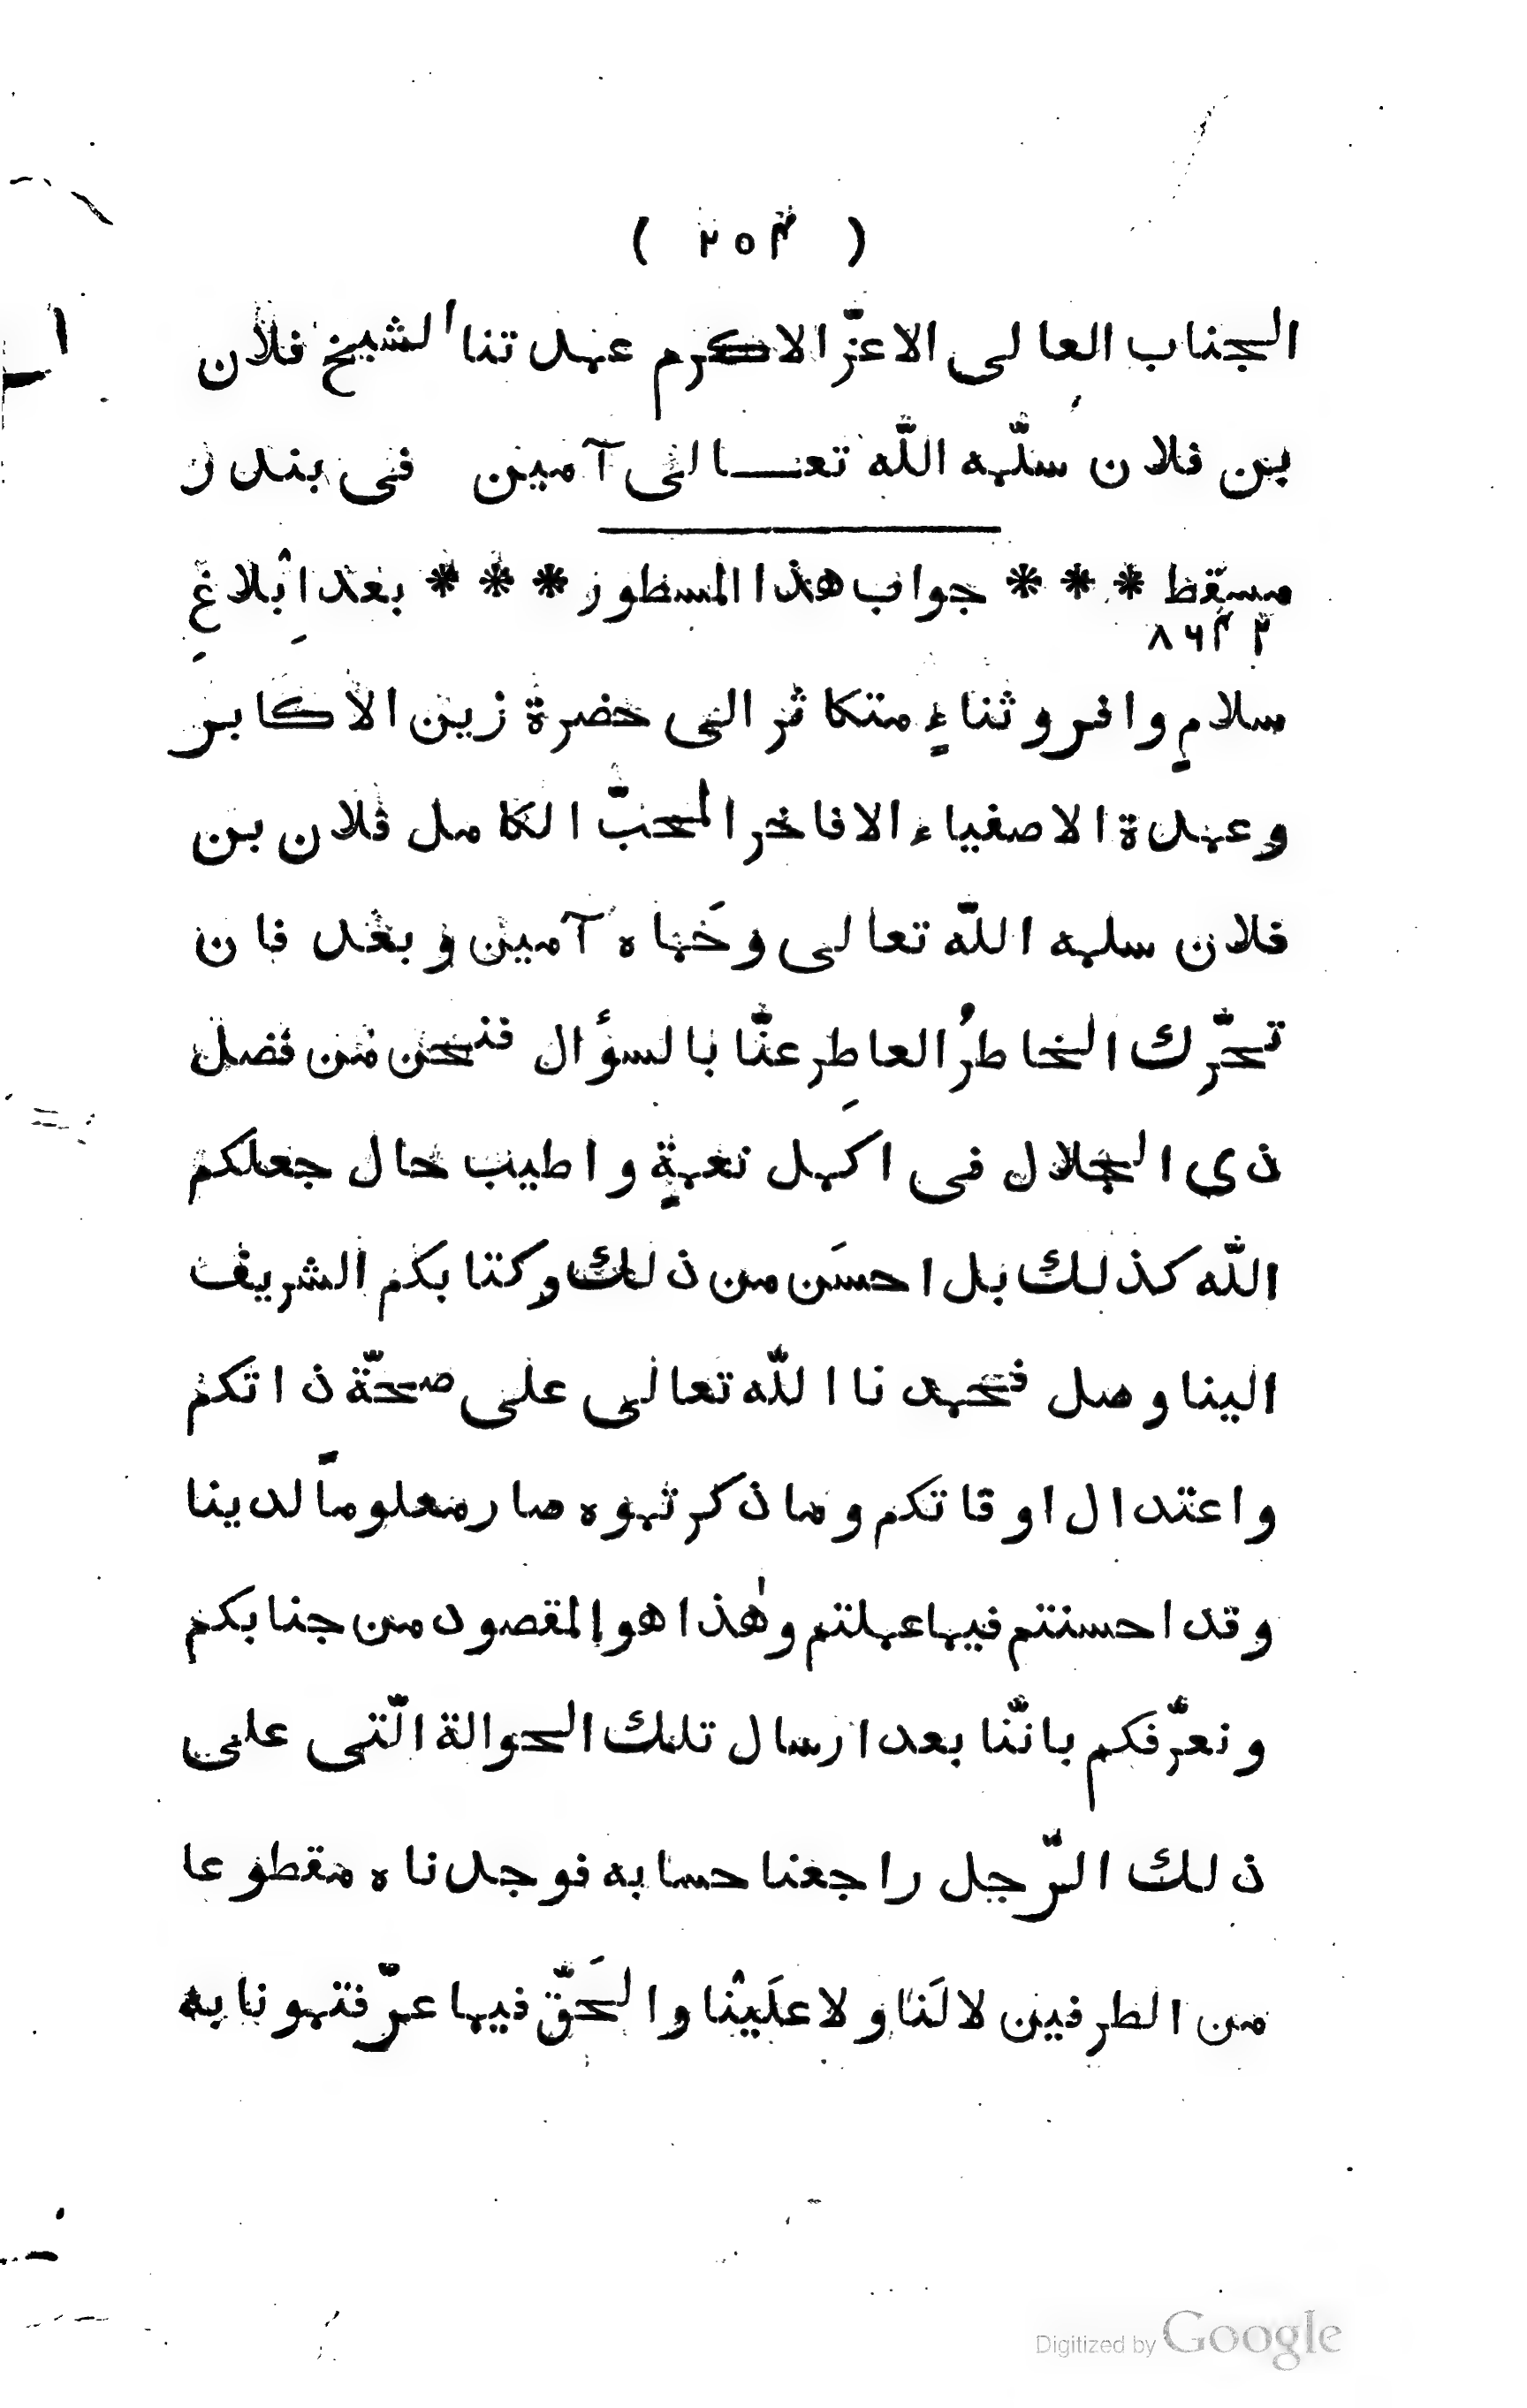 ( ٢٥٣ )
الجناب العالى الاعزّ الاكرم عمدتنا الشيخ فلان
بن فلان سلّمه اللّه تعالى آمين فى بندر
مسقط * * * جواب هذا المسطور * * * بعد اِبْلاغِ
٨٦٤٢
سلامٍ وافر وثناءٍ متكاثر الى حضرة زين الاكابر
وعمدة الاصفياء الافاخر المحبّ الكامل فلان بن
فلان سلمه اللّه تعالى وحَماه آمين وبعد فان
تحّرك الخاطرُ العاطِر عنّا بالسؤال فنحن من فضل
ذى الجلال فى اكمل نعمةٍ واطيب حال جعلكم
اللّه كذلك بل احسَن من ذلك وكتابكم الشريف
الينا وصل فحمدنا اللّه تعالى على صحّة ذاتكم
واعتدال اوقاتكم وما ذكرتموه صار معلوماً لدينا
وقد احسنتم فيما عملتم وهٰذا هو المقصود من جنابكم
ونعرّفكم بانّنا بعد ارسال تلك الحوالة الّتى على
ذلك الرّجل راجعنا حسابه فوجدناه مقطوعا
من الطرفين لا لَنا ولا علَيْنا والحَقّ فيما عرّفتمونا به
Digitized by Google